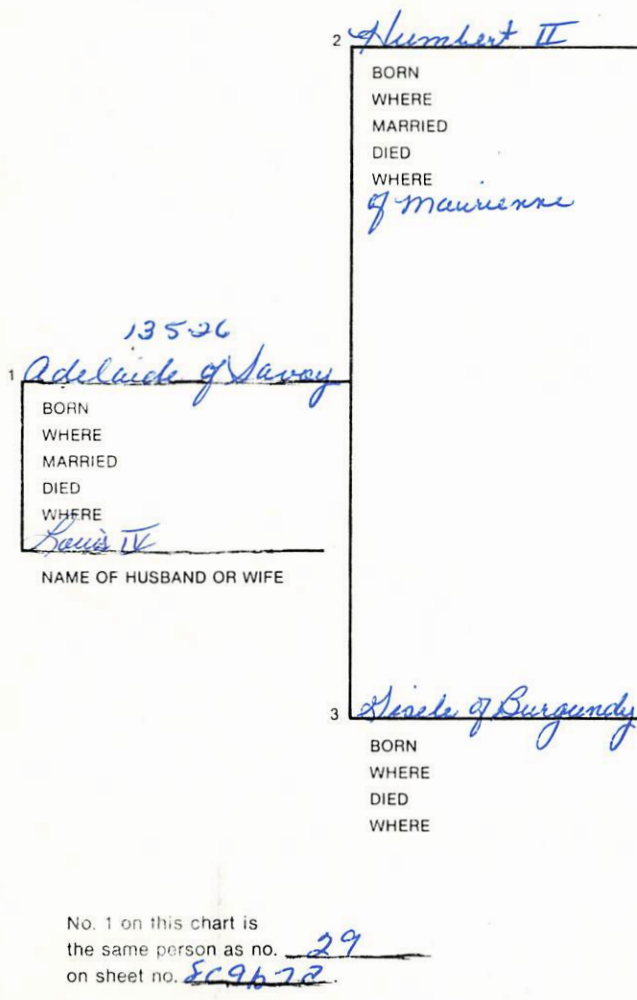 2 Humbert II
BORN
WHERE
MARRIED
DIED
WHERE
of Maurienne
13526
1 Adelaide of Savoy
BORN
WHERE
MARRIED
DIED
WHERE
Louis IV
NAME OF HUSBAND OR WIFE
3 Gisele of Burgundy
BORN
WHERE
DIED
WHERE
No. 1 on this chart is
the same person as no. 29
on sheet no.